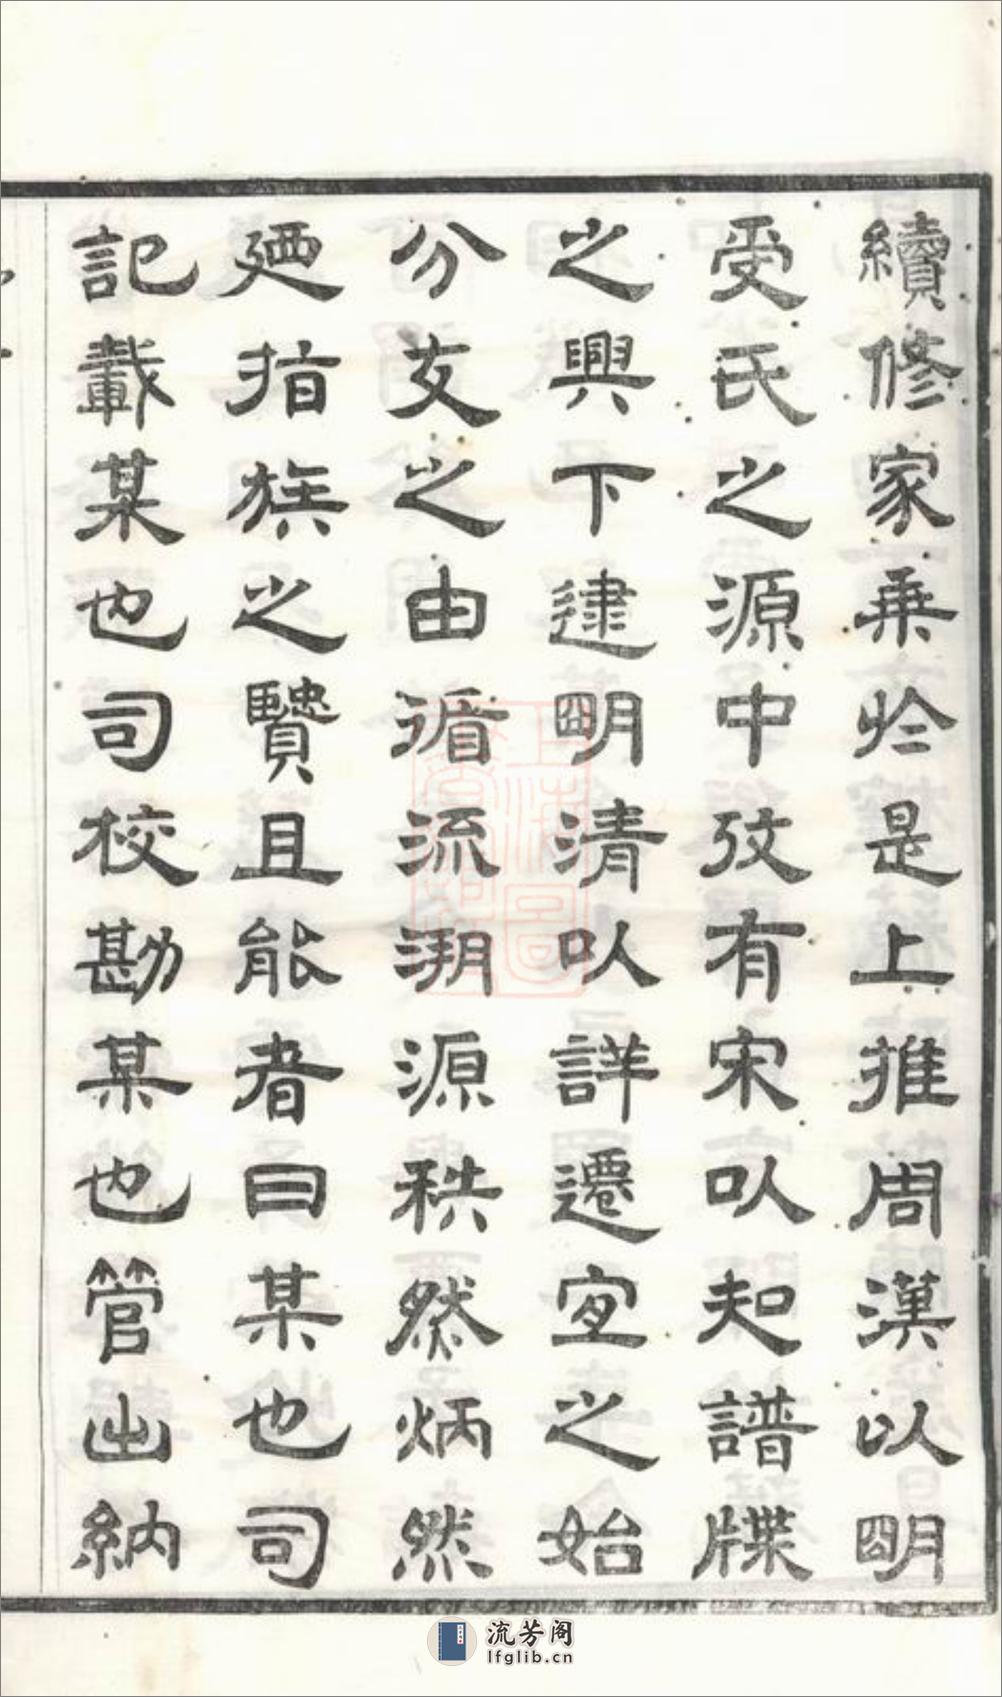 續修家乗扵是上推周漢以明
受氏之源中攷有宋㕥知譜牒
之興下建明清㕥詳遷㝎之始
分支之由循流溯源秩然炳然
廼指族之賢且能者曰某也司
記載某也司校勘某也管出納
流芳阁
lfglib.cn